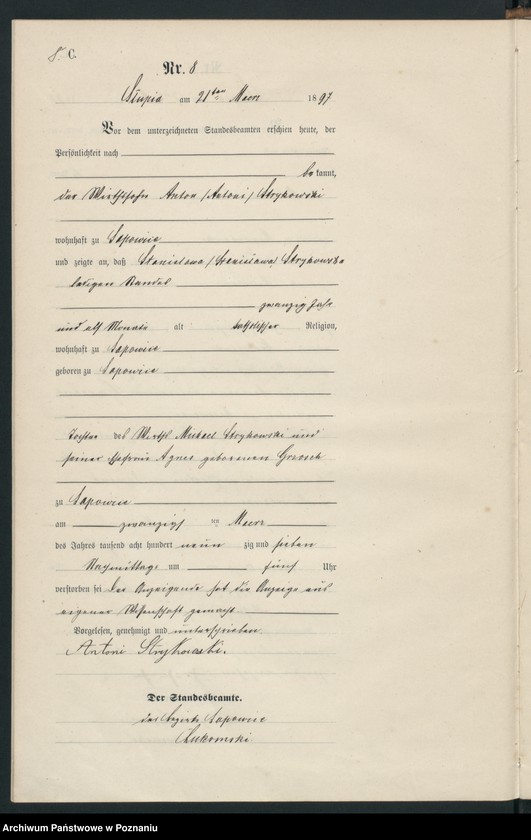 8. C.
Nr. 8
Słupia am 21ten Maerz 1897
Vor dem unterzeichneten Standesbeamten erschien heute, der
Persönlichkeit nach
bekannt,
der Wirthssohn Anton /Antoni/ Strykowski
wohnhaft zu Sapowice
und zeigte an, daß Stanislawa /Stanisława/ Strykowska
ledigen Standes
zwanzig Jahr
und elf Monate alt katholischer Religion,
wohnhaft zu Sapowice
geboren zu Sapowice
Tochter des Wirths Michael Strykowski und
seiner Ehefrau Agnes geborenen
zu Sapowice
am zwanzigsten Maerz
des Jahres tausend acht hundert neun zig und sieben
Nachmittags um fünf Uhr
verstorben sei Der Anzeigende hat die Anzeige aus
eigener Wissenschaft gemacht.
Vorgelesen, genehmigt und unterschrieben
Antoni Strykowski.
Der Standesbeamte.
des Bezirks Sapowice
Archiwum Państwowe w Poznaniu